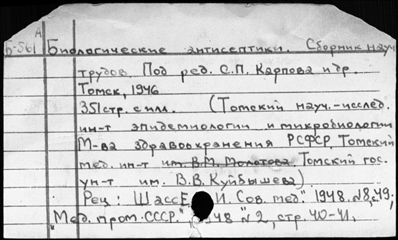 А
Б-561 Биологические антисептики. Сборник науч.
трудов. Под ред. С.П. Карпова и др.
Томск, 1946
351 стр. с илл. (Томский науч.-исслед.
ин-т эпидемиологии и микробиологии
М-ва здравоохранения РСФСР, Томский
мед. ин-т им. В.М. Молотова Томский гос.
ун-т им. В.В. Куйбышева)
Рец: Шасс Е. И. "Сов. мед." 1948. №8, с 49;
"Мед. пром. СССР." 48 №2, стр. 40-41.